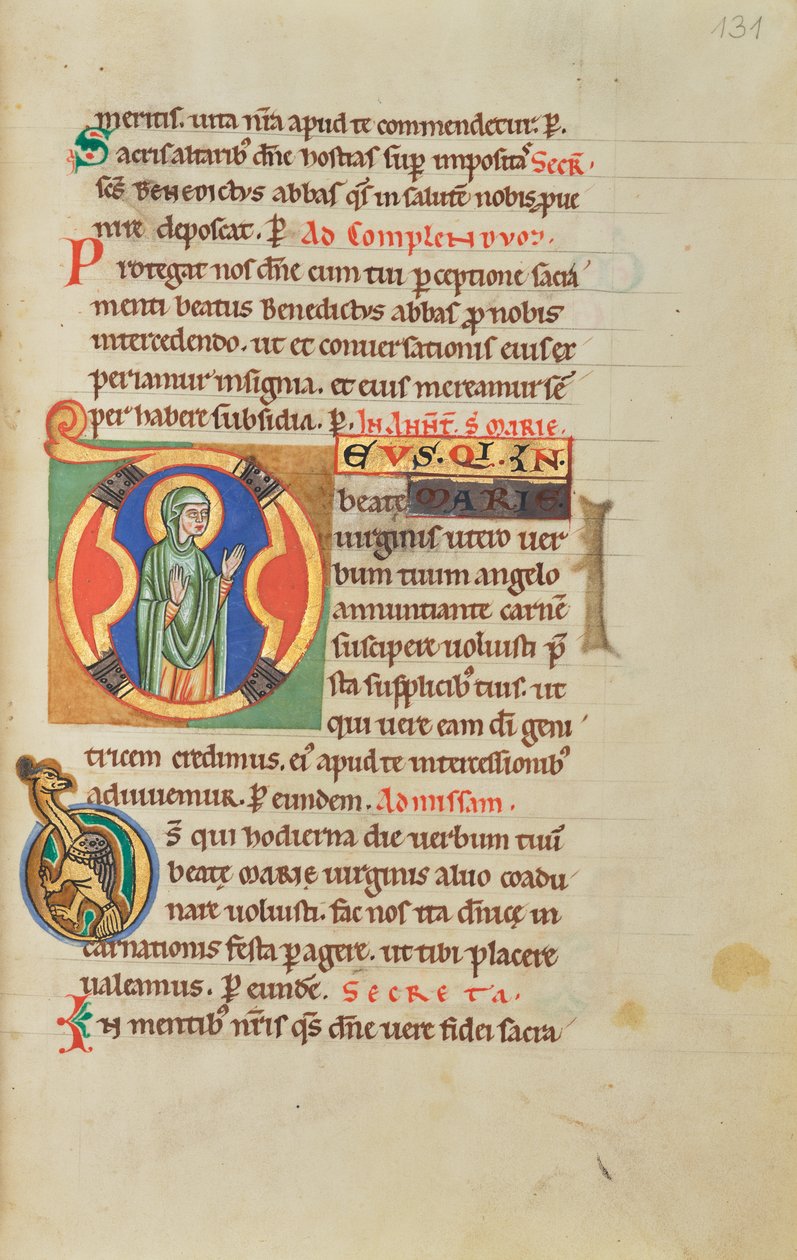 131
meritis. uita nr̃a apud te commendetur. p̱.
Sacris altarib᷒ dñe hostias sup̱ impositas Secr̃.
sc̃s BENEDICTVS abbas qs̃ in salutẽ nobis ꝓue
nire deposcat. p̱ Ad Complendvm.
Protegat nos dñe cum tui p̱ceptione sacra
menti beatus Benedictvs abbas ꝓ nobis
intercedendo. ut et conuersationis eius ex
periamur insignia. et eius mereamur sẽ
per habere subsidia. p̱. IN ANNT̃. S̃ MARIE.
DEVS. QI. IN.
beate MARIE.
uirginis utero uer
bum tuum angelo
annuntiante carnẽ
suscipere uoluisti p̃
sta supplicib᷒ tuis. ut
qui uere eam dĩ geni
tricem credimus. ei᷒ apud te intercessionib᷒
adiuuemur. p̱ eundem. Ad missam.
Ds̃ qui hodierna die uerbum tuũ
beatę MARIĘ uirginis aluo coadu
nare uoluisti. fac nos ita dñicę in
carnationis festa p̱agere. ut tibi placere
ualeamus. p̱ eundẽ. Secreta.
IN mentib᷒ nr̃is qs̃ dñe uere fidei sacra